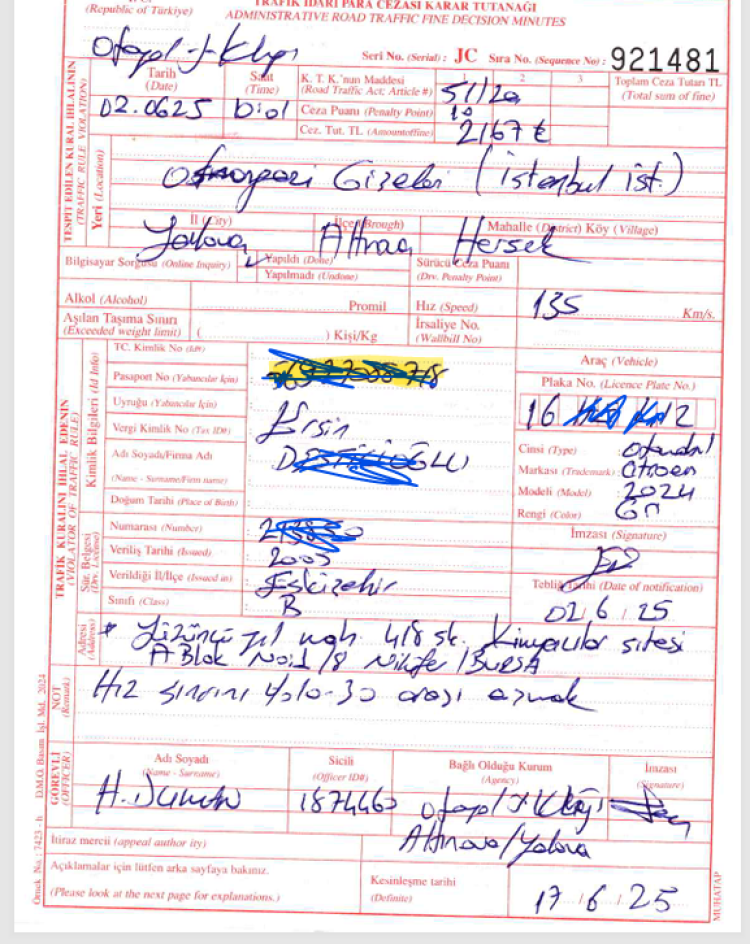 TRAFİK İDARİ PARA CEZASI KARAR TUTANAĞI
(Republic of Türkiye) ADMINISTRATIVE ROAD TRAFFIC FINE DECISION MINUTES
Seri No. (Serial) : JC Sıra No. (Sequence No) : 921481
TESPİT EDİLEN KURAL İHLALİNİN
(TRAFFIC RULE VIOLATION)
Tarih
(Date)
02.0625
Saat
(Time)
K. T. K.'nun Maddesi
(Road Traffic Act; Article #)
1 2 3
51/2a
Toplam Ceza Tutarı TL
(Total sum of fine)
Ceza Puanı (Penalty Point) 10
Cez. Tut. TL (Amountoffine) 2167 ₺
Yeri (Location)
Gişeleri (istanbul ist.)
İl (City) İlçe (Brough) Mahalle (District) Köy (Village)
Yalova Hersek
Bilgisayar Sorgusu (Online Inquiry)
Yapıldı (Done)
Yapılmadı (Undone)
Sürücü Ceza Puanı
(Drv. Penalty Point)
Alkol (Alcohol) Promil
Hız (Speed) 135 Km/s.
Aşılan Taşıma Sınırı
(Exceeded weight limit) ( ) Kişi/Kg
İrsaliye No.
(Wallbill No)
TRAFİK KURALINI İHLAL EDENİN
(VIOLATOR OF TRAFFIC RULE)
Kimlik Bilgileri (Id Info)
TC. Kimlik No (Id#) :
Pasaport No (Yabancılar İçin) :
Uyruğu (Yabancılar İçin) :
Vergi Kimlik No (Tax ID#) : Ersin
Adı Soyadı/Firma Adı :
(Name - Surname/Firm name)
Doğum Tarihi (Place of Birth) :
Sür. Belgesi
(Drv. License)
Numarası (Number) :
Veriliş Tarihi (Issued) : 2003
Verildiği İl/İlçe (Issued in) : Eskişehir
Sınıfı (Class) : B
Araç (Vehicle)
Plaka No. (Licence Plate No.)
16
Cinsi (Type) :
Markası (Trademark) : Citroen
Modeli (Model) : 2024
Rengi (Color) :
İmzası (Signature)
Tebliğ Tarihi (Date of notification)
02 / 6 / 25
Adresi
(Address)
Yüzüncü yıl mah. 418 sk. sitesi
A Blok Nilüfer / BURSA
NOT
(Remark)
Hız sınırını %10-30 arası aşmak
GÖREVLİ
(OFFICER)
Adı Soyadı
(Name - Surname)
Sicili
(Officer ID#)
Bağlı Olduğu Kurum
(Agency)
İmzası
(Signature)
H. 1874460
Altınova/Yalova
İtiraz mercii (appeal author ity)
Açıklamalar için lütfen arka sayfaya bakınız.
(Please look at the next page for explanations.)
Kesinleşme tarihi
(Definite)
17 / 6 / 25
Örnek No. : 7423 - h D.M.O. Basım İşl. Md. 2024
MUHATAP